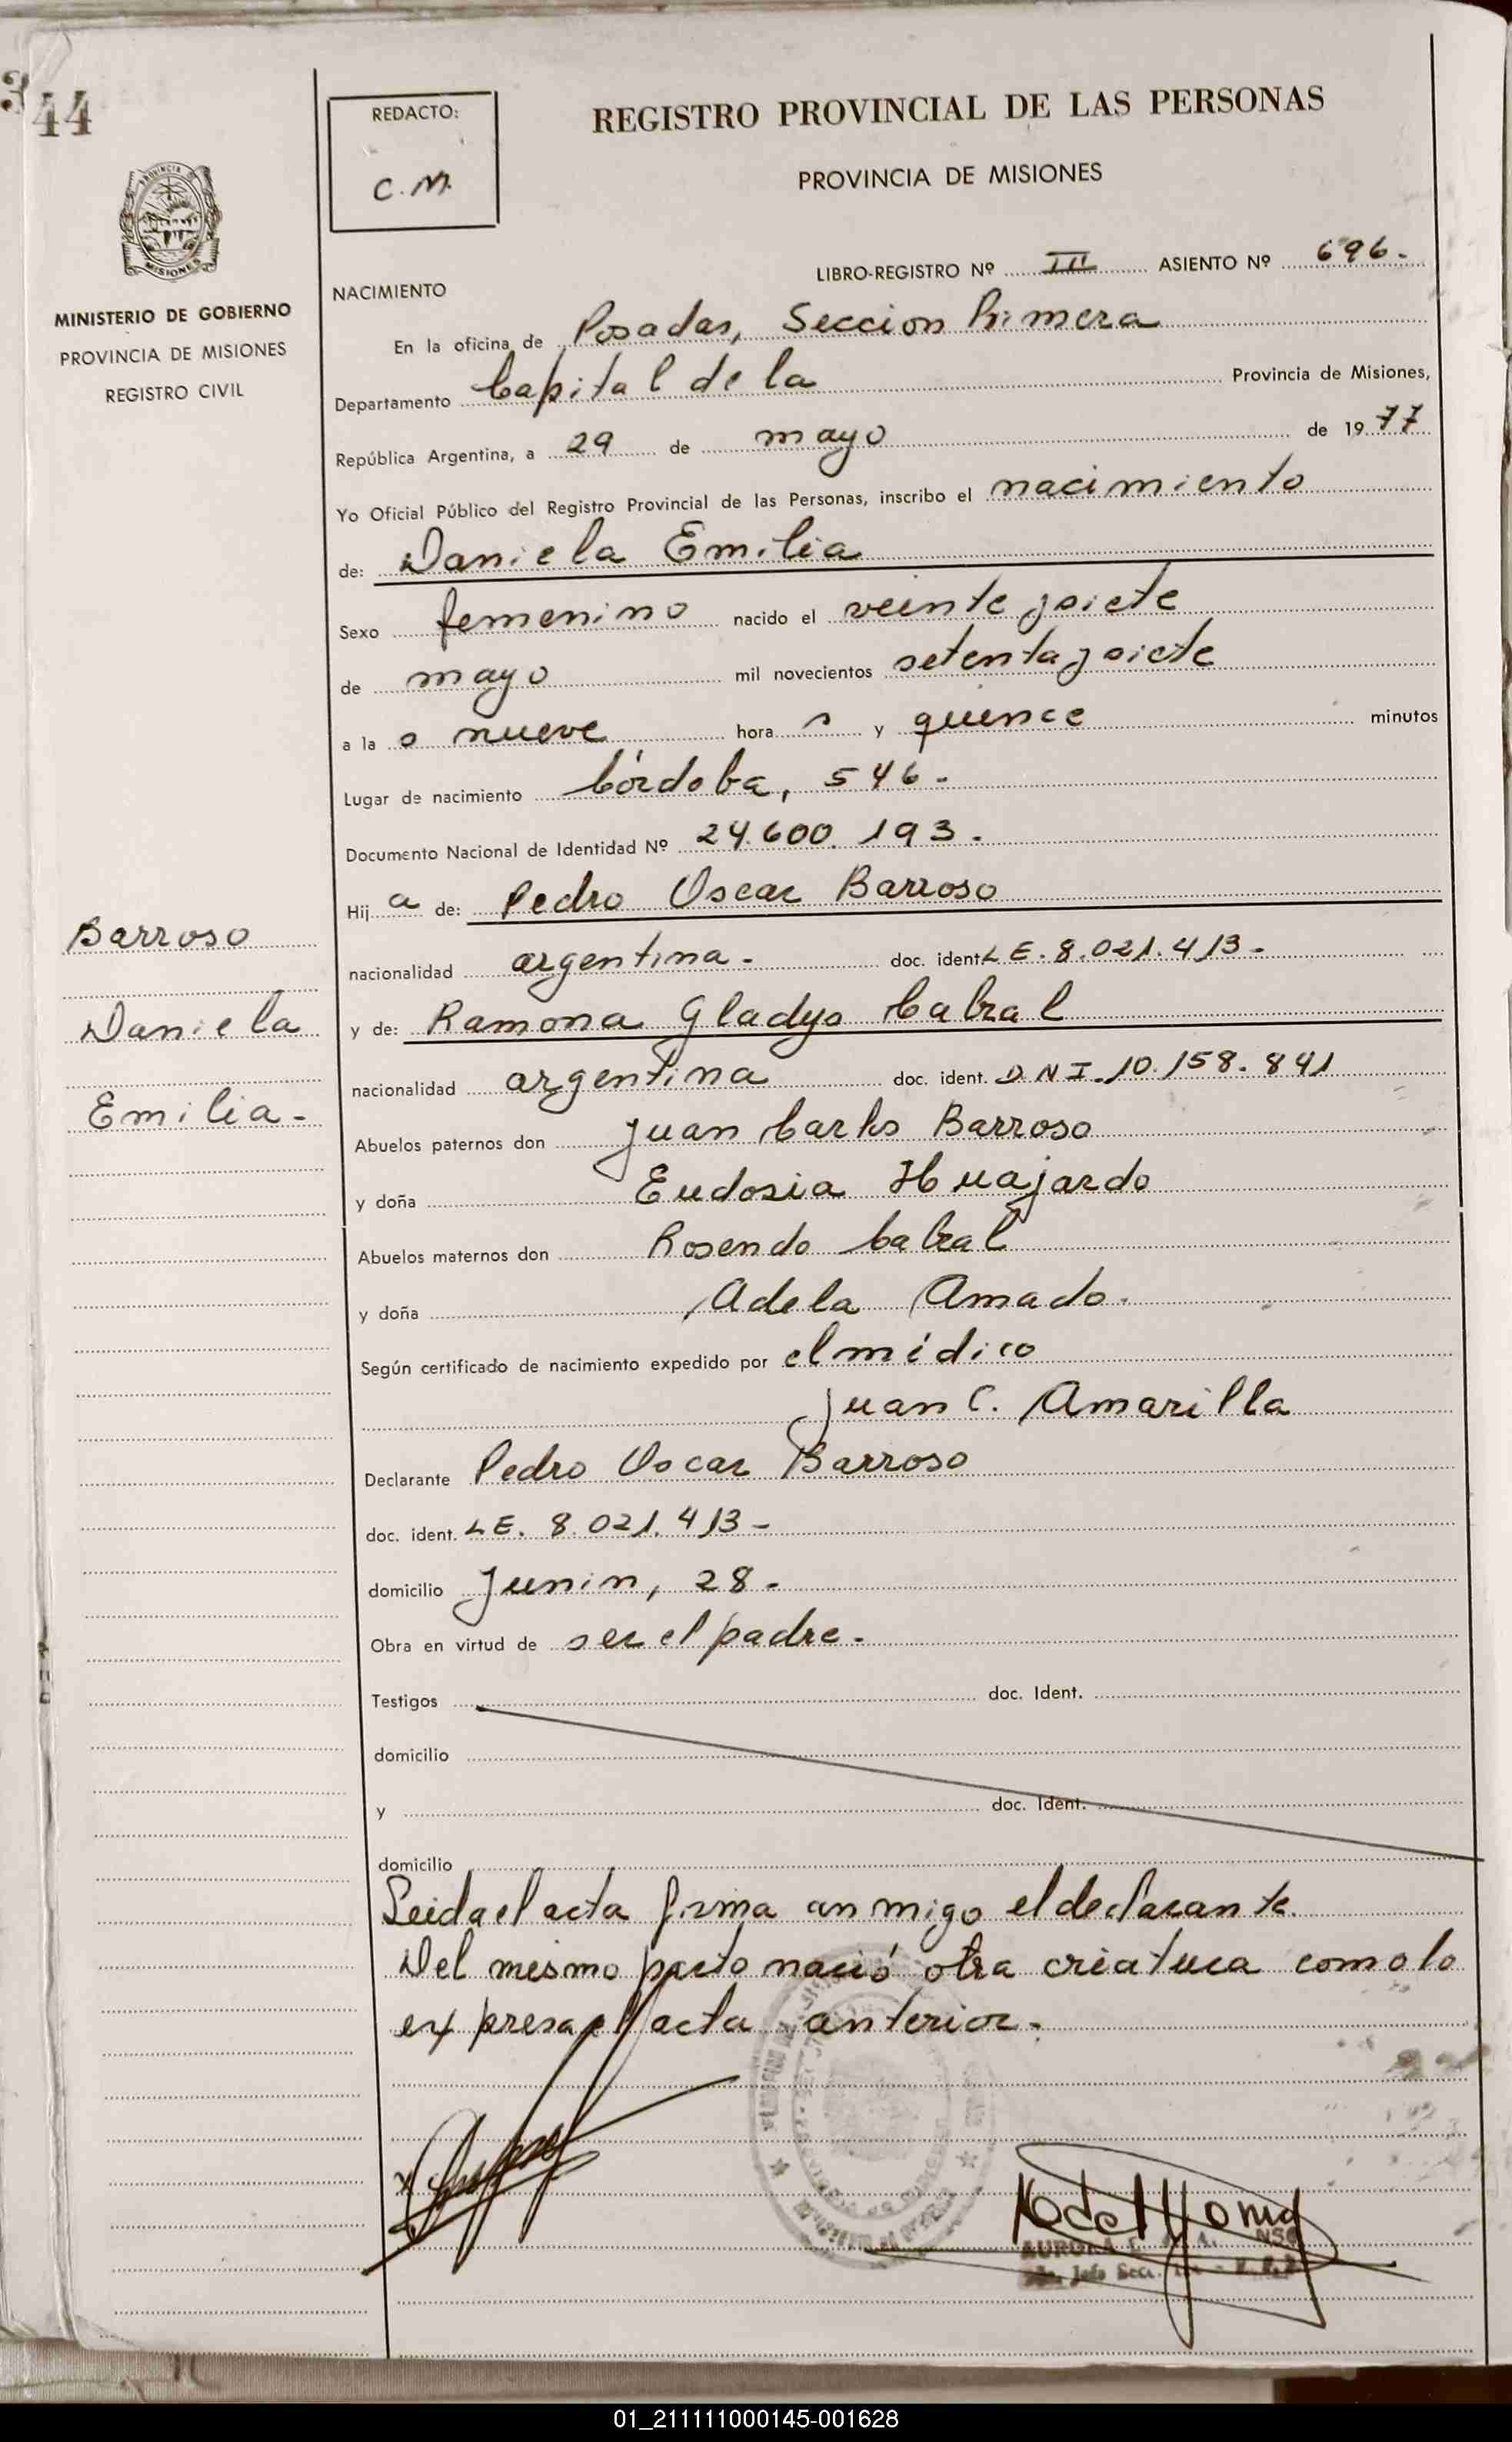 344
REDACTO:
C. M.
REGISTRO PROVINCIAL DE LAS PERSONAS
PROVINCIA DE MISIONES
PROVINCIA
MISIONES
MINISTERIO DE GOBIERNO
PROVINCIA DE MISIONES
REGISTRO CIVIL
LIBRO-REGISTRO Nº III ASIENTO Nº 696.
NACIMIENTO
En la oficina de Posadas, Seccion Primera
Departamento Capital de la Provincia de Misiones,
República Argentina, a 29 de mayo de 1977
Yo Oficial Público del Registro Provincial de las Personas, inscribo el nacimiento
de: Daniela Emilia
Sexo femenino nacido el veintejsiete
de mayo mil novecientos setentajsiete
a la s nueve hora s y quince minutos
Lugar de nacimiento Córdoba, 546.
Documento Nacional de Identidad Nº 24.600.193.
Hij a de: Pedro Oscar Barroso
nacionalidad argentina. doc. ident. LE. 8.021.413-
y de: Ramona Gladys Cabral
nacionalidad argentina doc. ident. D.N.I. 10.158.841
Abuelos paternos don Juan Carlos Barroso
y doña Eudosia Huajardo
Abuelos maternos don Rosendo Cabral
y doña Adela Amado.
Según certificado de nacimiento expedido por el médico
Juan C. Amarilla
Declarante Pedro Oscar Barroso
doc. ident. LE. 8.021.413-
domicilio Junin, 28.
Obra en virtud de ser el padre.
Testigos doc. Ident.
domicilio
y doc. Ident.
domicilio
Leida el acta firma conmigo el declarante.
Del mismo parto nació otra criatura como lo
expresa el acta anterior.
Barroso
Daniela
Emilia-
01_211111000145-001628